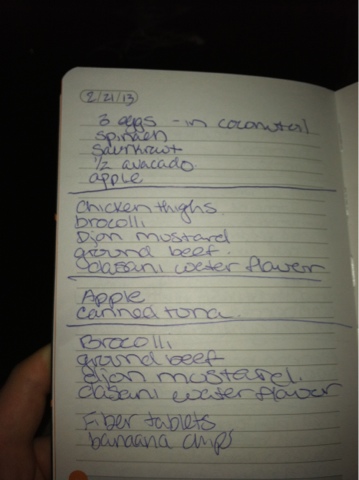 2/21/13
3 eggs - in coconut oil
spinach
saurkraut
1/2 avacado
apple
Chicken thighs
brocolli
Dijon mustard
ground beef.
dasani water flavorr
Apple
canned tuna.
Brocolli
ground beef
dijon mustard.
dasani water flavor
Fiber tablets
banana chips